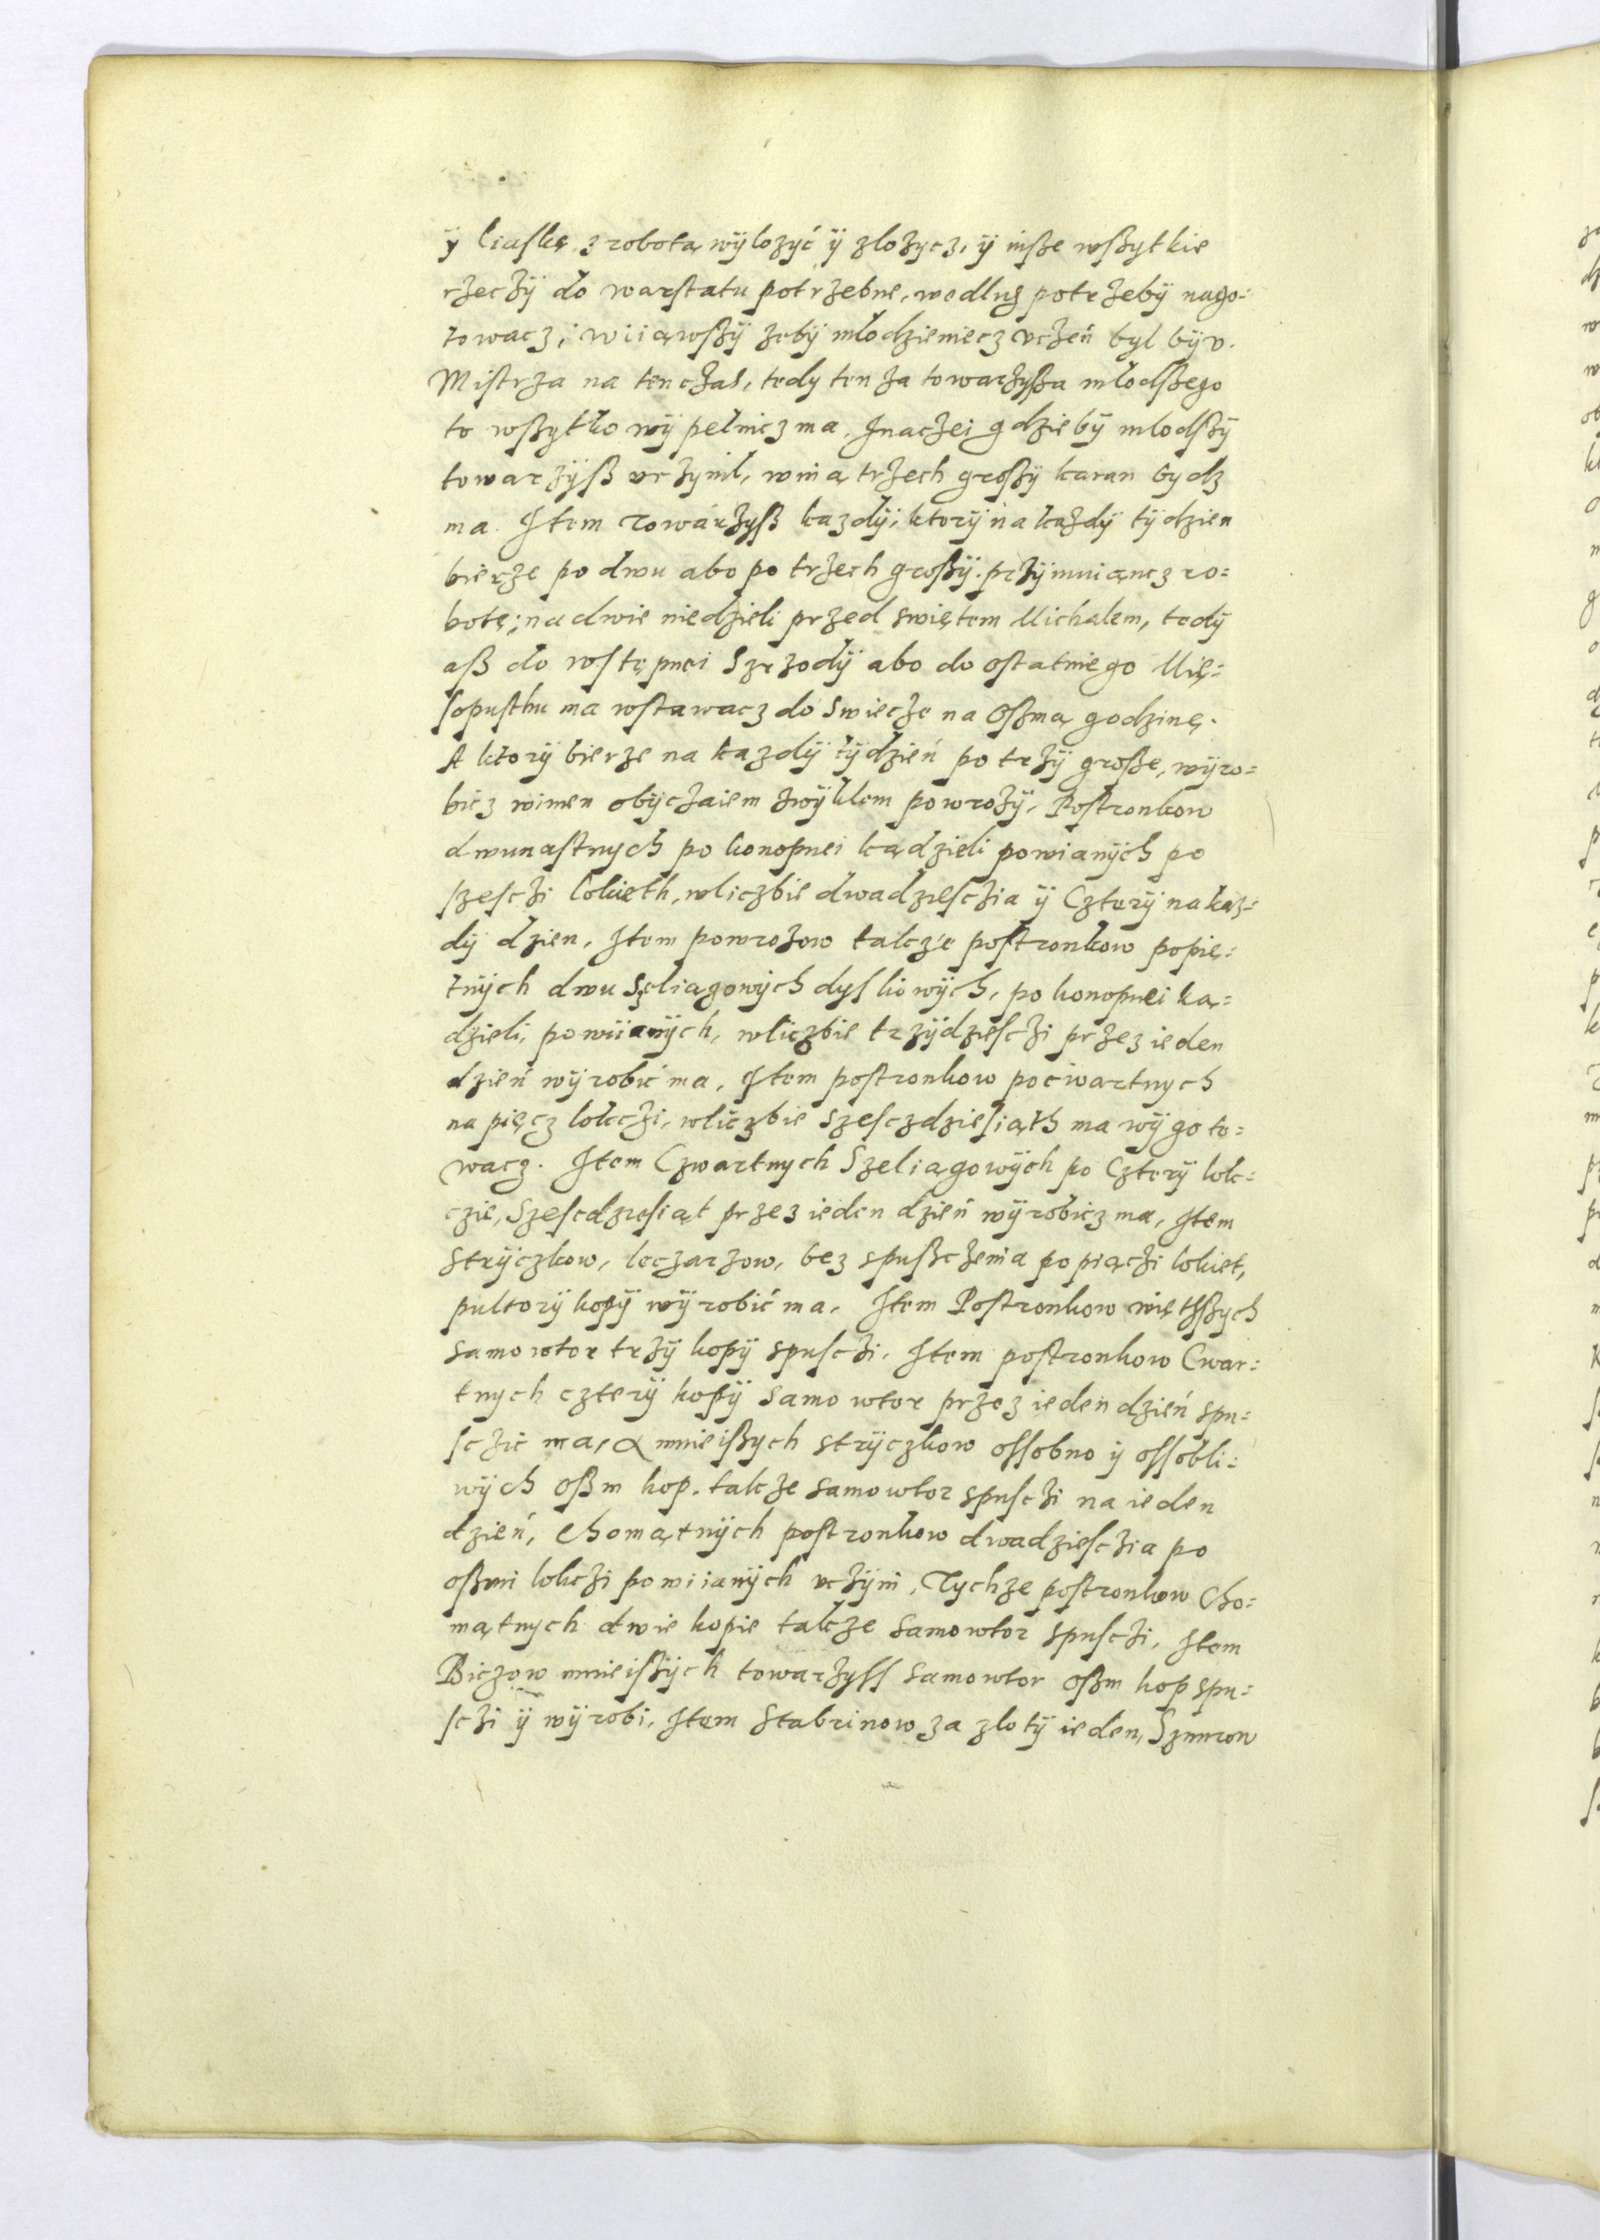 ÿ liaskę z robotą wÿlozyć ÿ zlozycz, ÿ insze wszytkie
rzeczÿ do warstatu potrzebne, wedlug potrzebÿ nago:
towacz, wÿiąwszÿ zebÿ mlodzieniecz uczeń byl bÿ v
Mistrza na tenczas, tedy ten za towarzysza mlodszego
to wszytko wÿpelnicz ma. Jnaczei gdziebÿ mlodszÿ
towarzÿsz vczynil, winą trzech groszÿ karan bydz
ma. Jtem Towarzysz kazdÿ, ktorÿ na kazdÿ tÿdzien
bierze po dwu abo po trzech groszÿ. przÿmuiąncz ro:
botę; na dwie niedzieli przed swiętem Michalem, tedÿ
asz do wstępnei Szrzodÿ abo do ostatniego Mię:
sopusthu ma wstawacz do swiecze na oszmą godzinę.
A ktorÿ bierze na kazdÿ tÿdzień po trzÿ grosze, wÿro:
bicz winien obÿczaiem zwÿklem powrozÿ, Postronkow
dwunastnych po konopnei kądzieli powianÿch po
szesczi lokieth, wliczbie dwadziesczia ÿ Czterÿ na kaz:
dÿ dzien, Jtem powrozow takze postronkow popię:
tnÿch dwu Sęliagowÿch dyskowÿch, po konopnei ką:
dzieli, powiianÿch, wliczbie trzÿdziesczi przez ieden
dzień wÿrobić ma, Jtem postronkow poćwartnych
na pięcz lokczi, wliczbie szesczdziesiąth ma wÿgoto:
wacz. Jtem Czwartnych Szeliagowÿch po Czterÿ lok:
czie, Szescdziesiąt przez ieden dzień wÿrobicz ma, Jtem
Strÿczkow, leczarzow, bez spuszczenia po piączi lokiet,
pultorÿ kopÿ wÿrobić ma. Jtem Postronkow więthszych
samowtor trzÿ kopÿ spusczi. Jtem postronkow Cwar:
tnych czterÿ kopÿ samowtor przez ieden dzień spu:
sczic ma, a mnieiszych strÿczkow ossobno ÿ ossobli:
wÿch oszm kop. takze samowtor spusczi na ieden
dzień, Chomątnÿch postronkow dwadziesczia po
oszmi lokczi powiianÿch vczÿni, Tychze postronkow Cho:
mątnych dwie kopie takze samowtor spusczi, Jtem
Biczow mnieiszÿch towarzyss samowtor oszm kop spu:
sczi ÿ wÿrobi, Jtem Stabrinow za zlotÿ ieden, Sznurow